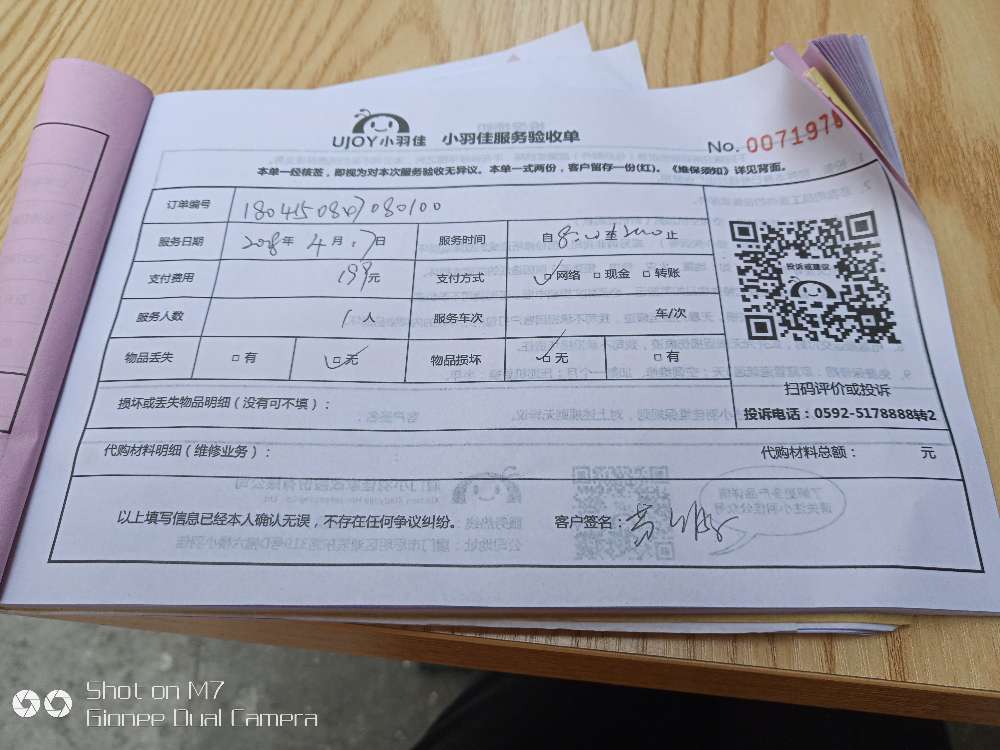 UJOY小羽佳 小羽佳服务验收单
No. 0071978
本单一经核签，即视为对本次服务验收无异议。本单一式两份，客户留存一份(红)。《维保须知》详见背面。
订单编号 1804150807080100
服务日期 2018年 4月 17日 服务时间 自8:00至 止
支付费用 199元 支付方式 网络 现金 转账
服务人数 1人 服务车次 车/次
物品丢失 有 无 物品损坏 无 有
扫码评价或投诉
投诉电话：0592-5178888转2
投诉或建议
损坏或丢失物品明细（没有可不填）：
代购材料明细（维修业务）： 代购材料总额： 元
以上填写信息已经本人确认无误，不存在任何争议纠纷。 客户签名：
Shot on M7
Gionee Dual Camera